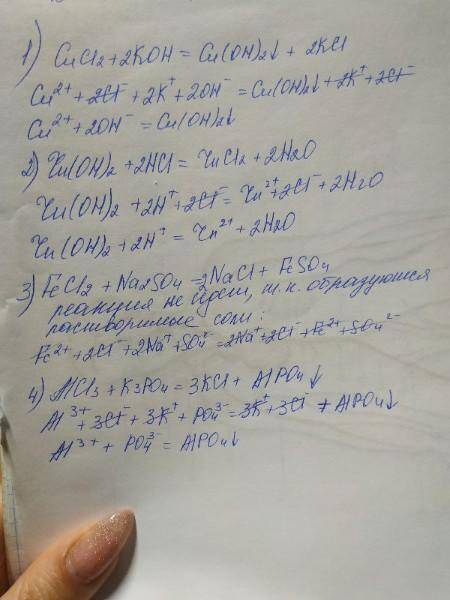 1) CuCl2 + 2KOH = Cu(OH)2↓ + 2KCl
Cu²⁺ + 2Cl⁻ + 2K⁺ + 2OH⁻ = Cu(OH)2↓ + 2K⁺ + 2Cl⁻
Cu²⁺ + 2OH⁻ = Cu(OH)2↓
2) Zn(OH)2 + 2HCl = ZnCl2 + 2H2O
Zn(OH)2 + 2H⁺ + 2Cl⁻ = Zn²⁺ + 2Cl⁻ + 2H2O
Zn(OH)2 + 2H⁺ = Zn²⁺ + 2H2O
3) FeCl2 + Na2SO4 = 2NaCl + FeSO4
реакция не идет, т.к. образуются
растворимые соли:
Fe²⁺ + 2Cl⁻ + 2Na⁺ + SO4²⁻ = 2Na⁺ + 2Cl⁻ + Fe²⁺ + SO4²⁻
4) AlCl3 + K3PO4 = 3KCl + AlPO4↓
Al³⁺ + 3Cl⁻ + 3K⁺ + PO4³⁻ = 3K⁺ + 3Cl⁻ + AlPO4↓
Al³⁺ + PO4³⁻ = AlPO4↓